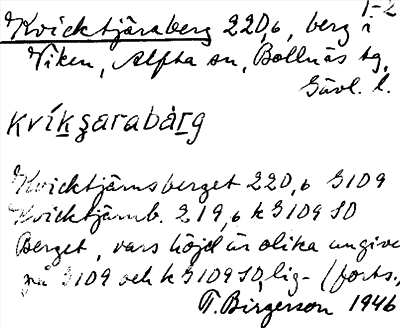 1-2
Kvicktjäraberg 220,6, berg i
Viken, Alfta sn, Bollnäs tg,
Gävl. l.
kvíkʂarabàrg
Kvicktjärnsberget 220,6 G109
Kvicktjärnb. 219,6 k G109 SO
Berget, vars höjd är olika angiven
på G109 och k G109 SO, lig- (forts.)
T. Birgerson 1946